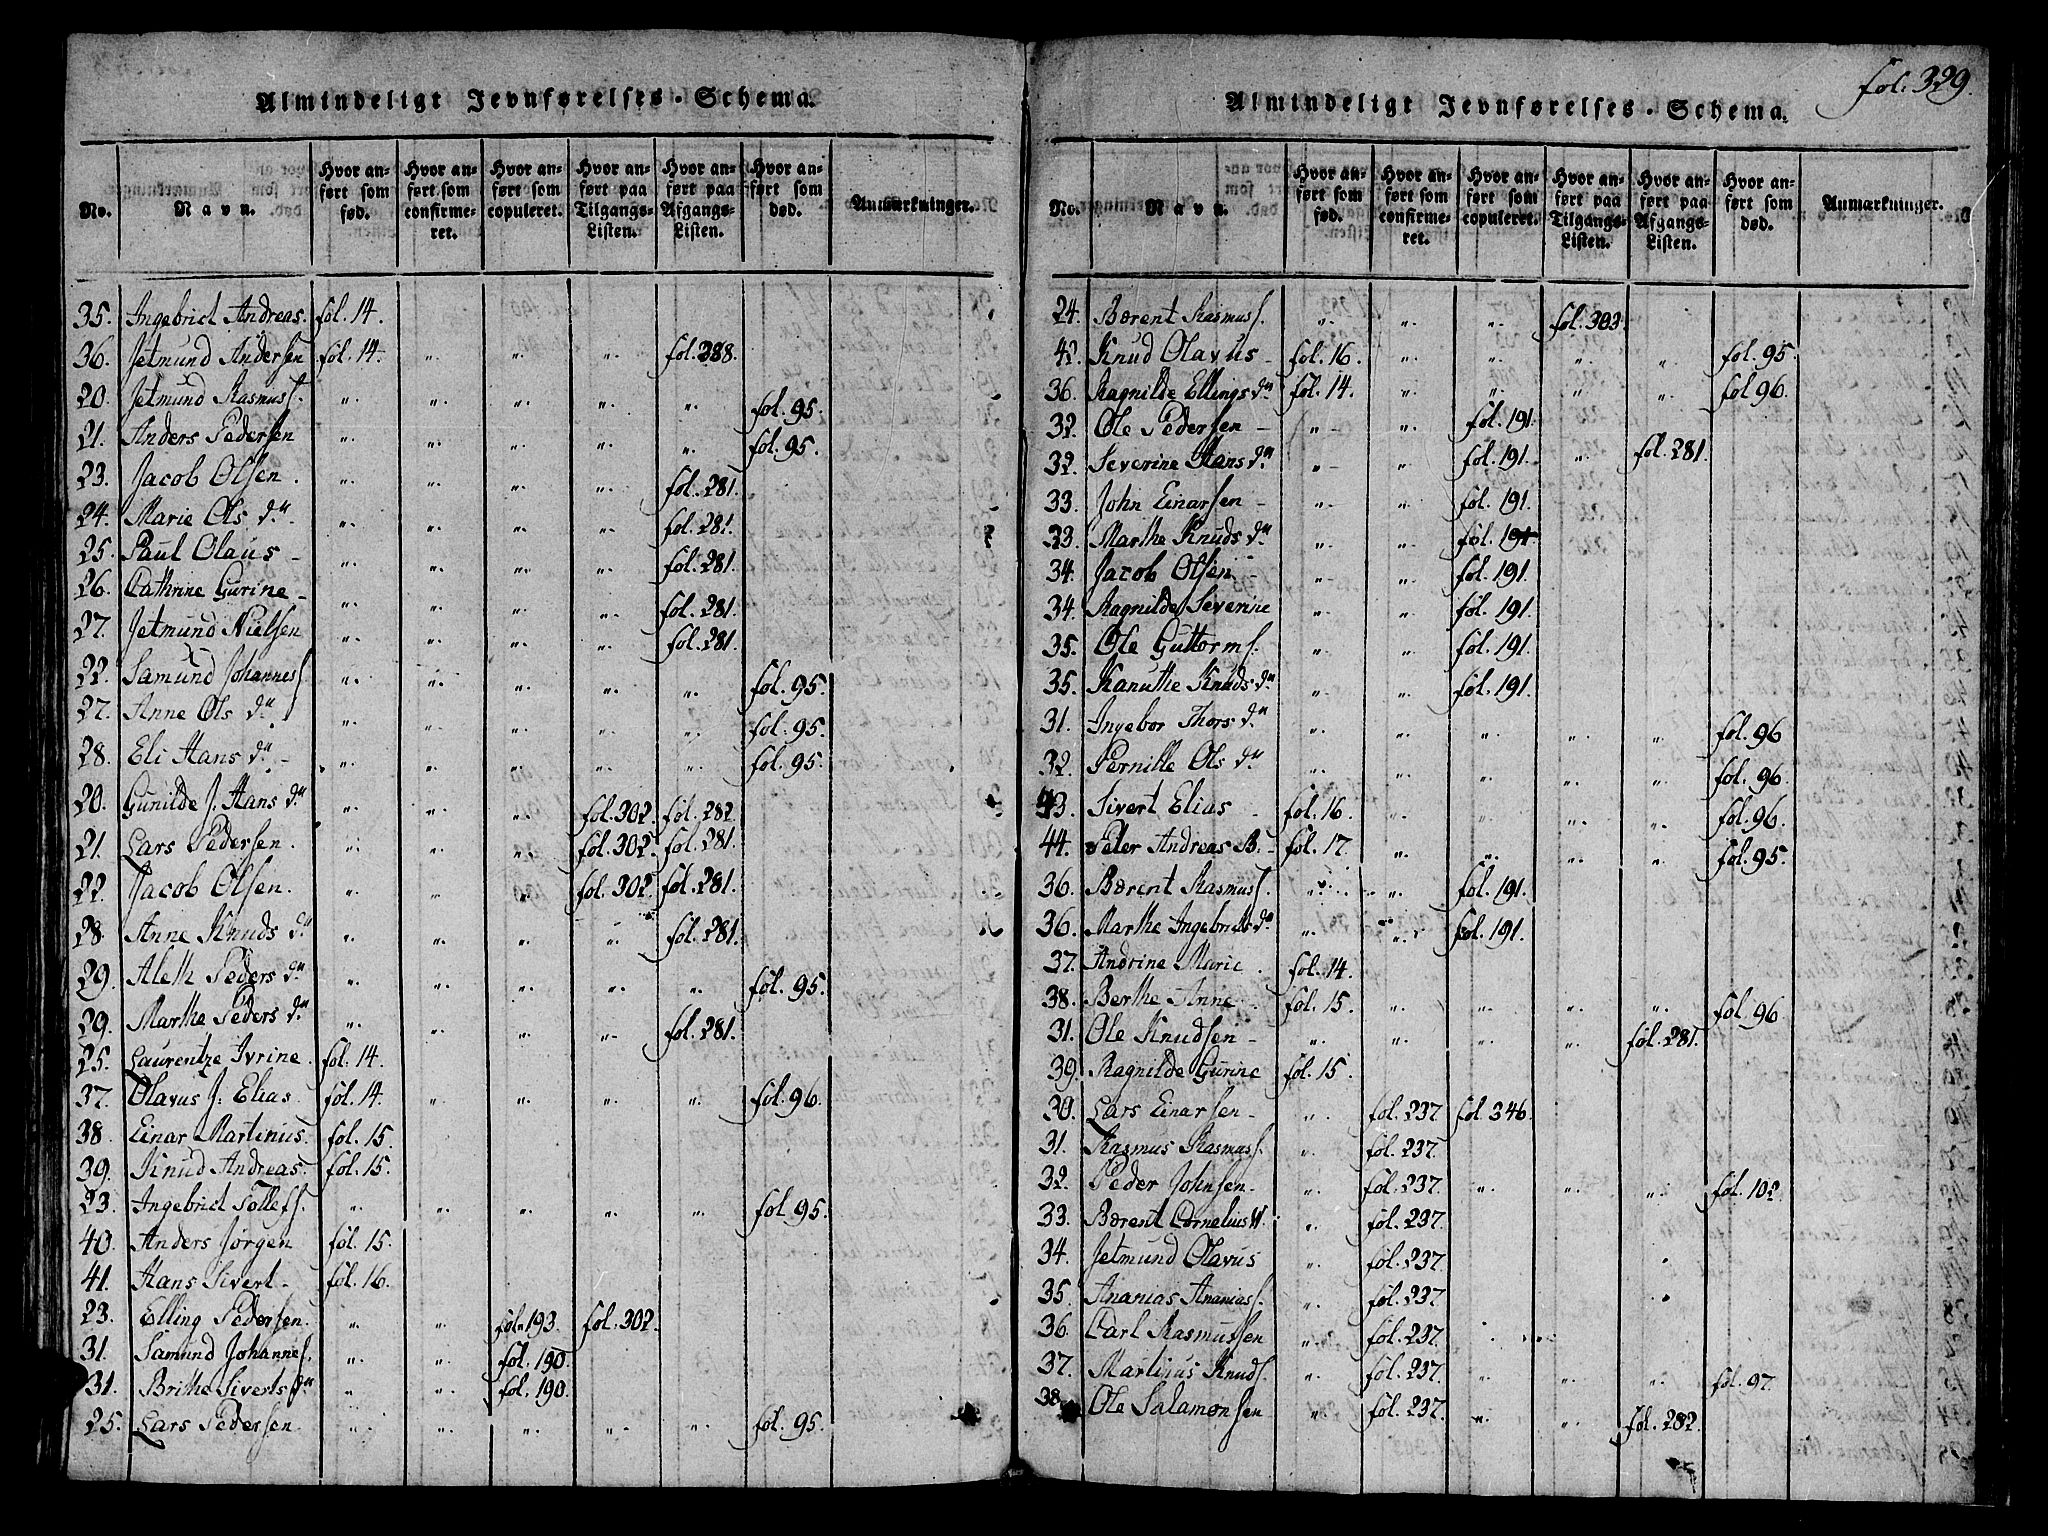 Almindeligt Jevnførelses-Schema.
No. | Navn. | Hvor anført som fød. | Hvor anført som confirmeret. | Hvor anført som copuleret. | Hvor anført paa Tilgangs-Listen. | Hvor anført paa Afgangs-Listen. | Hvor anført som død. | Anmærkninger.
35. Ingebrict Andreas. fol. 14.
36. Jetmund Andersen fol. 14. „ „ „ fol. 288.
20. Jetmund Rasmuss. „ „ „ „ „ fol. 95.
21. Anders Pedersen „ „ „ „ „ fol. 95.
23. Jacob Olsen. „ „ „ „ fol. 281.
24. Marie Ols dr. „ „ „ „ fol. 281.
25. Paul Olaus „ „ „ „ fol. 281.
26. Cathrine Gurine „ „ „ „ fol. 281.
27. Jetmund Nielsen „ „ „ „ fol. 281.
22. Samund Johannes. „ „ „ „ „ fol. 95.
27. Anne Ols dr. „ „ „ „ „ fol. 95.
28. Eli Hans dr. „ „ „ „ „ fol. 95.
20. Gunilde J. Hans dr. „ „ „ fol. 302. fol. 282.
21. Lars Pedersen. „ „ „ fol. 302. fol. 281.
22. Jacob Olsen. „ „ „ fol. 302. fol. 281.
28. Anne Knuds dr. „ „ „ „ fol. 281.
29. Aleth Peders dr. „ „ „ „ „ fol. 95.
29. Marthe Peders dr. „ „ „ „ fol. 281.
25. Laurentze Ivrine. fol. 14.
37. Olavus J. Elias. fol. 14. „ „ „ „ fol. 96.
38. Einar Martinus. fol. 15.
39. Knud Andreas. fol. 15.
23. Ingebrict Tollefs. „ „ „ „ „ fol. 95.
40. Anders Jørgen fol. 15.
41. Hans Sivert fol. 16.
23. Elling Pedersen. „ „ fol. 193. fol. 302.
31. Samund Johannes. „ „ fol. 190.
31. Brithe Siverts dr. „ „ fol. 190.
25. Lars Pedersen. „ „ „ „ „ fol. 95.
fol. 329.
Almindeligt Jevnførelses-Schema.
No. | Navn. | Hvor anført som fød. | Hvor anført som confirmeret. | Hvor anført som copuleret. | Hvor anført paa Tilgangs-Listen. | Hvor anført paa Afgangs-Listen. | Hvor anført som død. | Anmærkninger.
24. Bærent Rasmuss. „ „ „ fol. 303.
42. Knud Olavus fol. 16. „ „ „ „ fol. 95.
36. Ragnilde Ellings dr. fol. 14. „ „ „ „ fol. 96.
32. Ole Pedersen „ „ fol. 191.
32. Severine Hans dr. „ „ fol. 191. „ fol. 281.
33. John Einarsen „ „ fol. 191.
33. Marthe Knuds dr. „ „ fol. 191
34. Jacob Olsen „ „ fol. 191.
34. Ragnilde Severine „ „ fol. 191.
35. Ole Guttorms. „ „ fol. 191.
35. Kanuthe Knuds dr. „ „ fol. 191.
31. Ingebor Thors dr. „ „ „ „ „ fol. 96
32. Pernille Ols dr. „ „ „ „ „ fol. 96.
43. Sivert Elias fol. 16. „ „ „ „ fol. 96.
44. Peter Andreas B. fol. 17. „ „ „ „ fol. 95.
36. Bærent Rasmuss. „ „ fol. 191.
36. Marthe Ingebricts dr. „ „ fol. 191.
37. Andrine Marie. fol. 14.
38. Berthe Anne fol. 15. „ „ „ „ fol. 96
31. Ole Knudsen „ „ „ „ fol. 281.
39. Ragnilde Gurine fol. 15.
30. Lars Einarsen „ fol. 237 fol. 346.
31. Rasmus Rasmuss. „ fol. 237.
32. Peder Johnsen. „ fol. 237. „ „ „ fol. 102.
33. Bærent Cornelius W. „ fol. 237.
34. Jetmund Olavus „ fol. 237.
35. Ananias Ananias. „ fol. 237
36. Carl Rasmussen „ fol. 237.
37. Martinus Knuds. „ fol. 237. „ „ „ fol. 97.
38. Ole Salamonsen „ fol. 237. „ „ fol. 282.